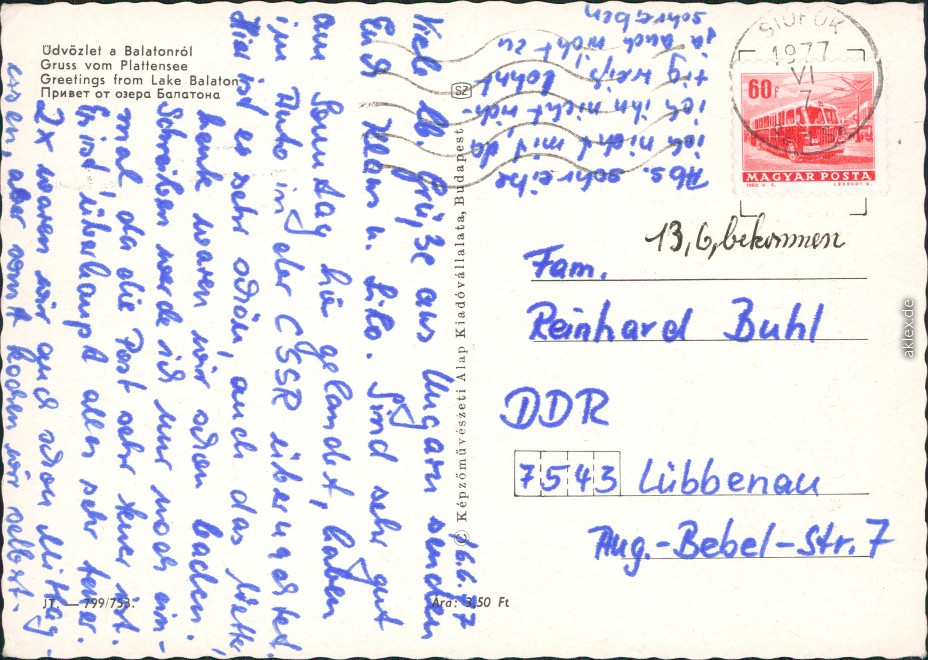 Üdvözlet a Balatonról
Gruss vom Plattensee
Greetings from Lake Balaton
Привет от озера Балатона
16.6.77
Viele lb Grüße aus Ungarn senden
Euch Klaus u. Liko. Sind sehr gut
am Sonntag hier gelandet, haben
im Auto in der CSSR übernachtet.
Hier ist es sehr schön, auch das Wetter
heute waren wir schon baden.
Schreiben werde ich nur noch ein-
mal da die Post sehr teuer ist.
Es ist überhaupt alles sehr teuer.
2x waren wir auch schon Mittag-
essen aber sonst kochen wir selbst.
Abs. schreibe
ich nicht mit da
ich ihn nicht rich-
tig weiß lohnt
ja auch nicht zu
schreiben
SZ
© Képzőművészeti Alap Kiadóvállalata, Budapest
JT. — 799/753.
Ára: 3,50 Ft
SIÓFOK
1977
VI
7
60f
MAGYAR POSTA
13,6, bekommen
Fam.
Reinhard Buhl
DDR
7543 Lübbenau
Aug.-Bebel-Str. 7
aklex.de